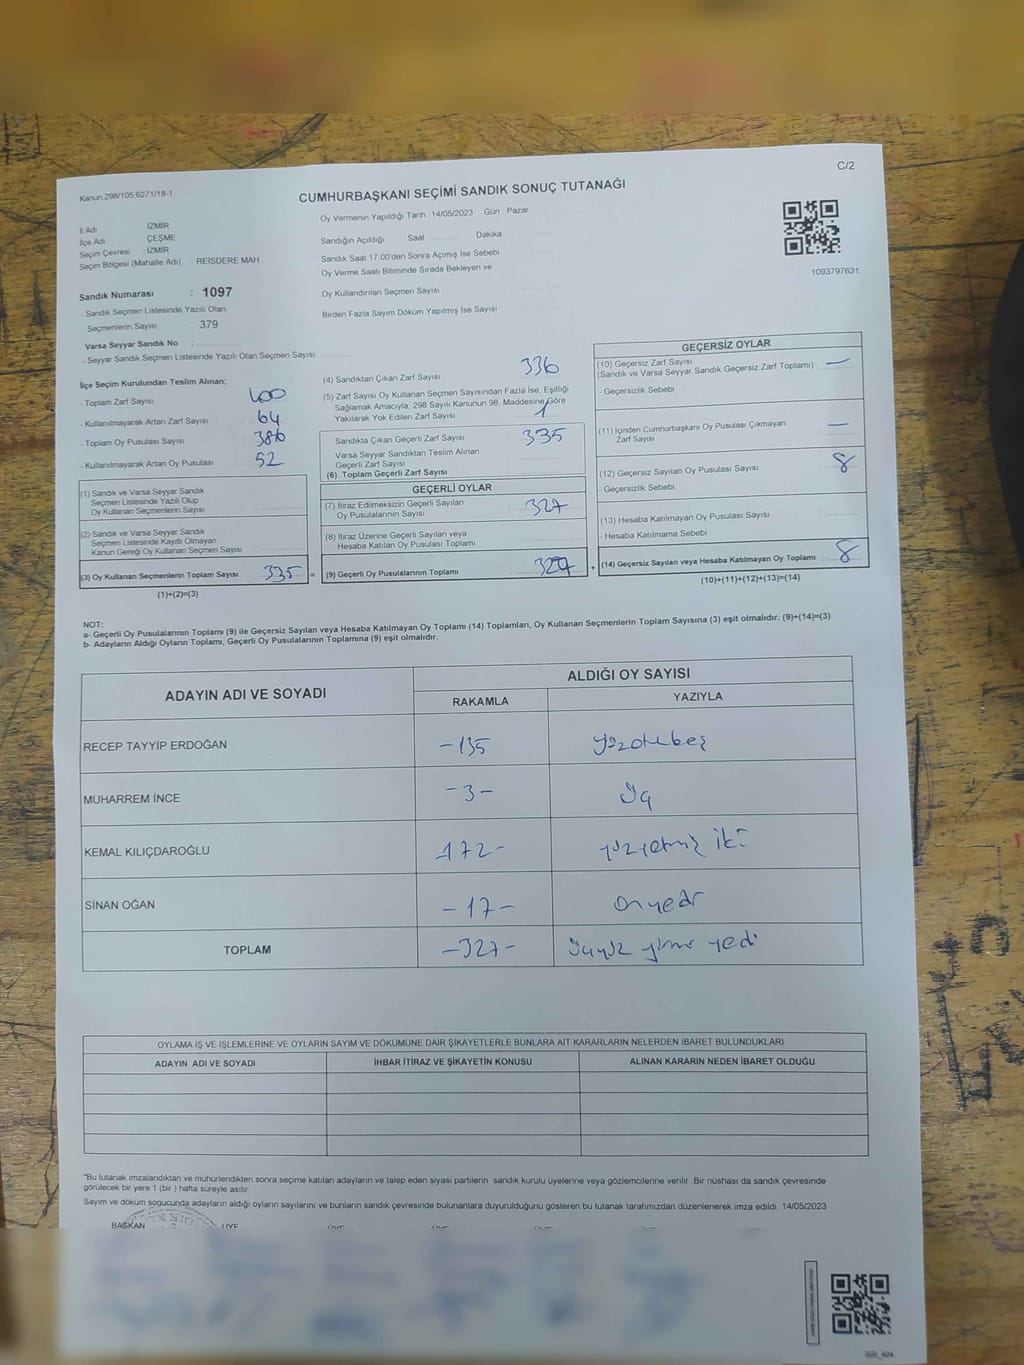 C/2
Kanun 298/105,6271/18-1
CUMHURBAŞKANI SEÇİMİ SANDIK SONUÇ TUTANAĞI
Oy Vermenin Yapıldığı Tarih : 14/05/2023 Gün : Pazar
İl Adı : İZMİR
İlçe Adı : ÇEŞME
Seçim Çevresi : İZMİR
Seçim Bölgesi (Mahalle Adı) : REISDERE MAH
Sandık Numarası : 1097
- Sandık Seçmen Listesinde Yazılı Olan
Seçmenlerin Sayısı : 379
Varsa Seyyar Sandık No :
- Seyyar Sandık Seçmen Listesinde Yazılı Olan Seçmen Sayısı:
Sandığın Açıldığı Saat Dakika
Sandık Saat 17:00'den Sonra Açımış İse Sebebi
Oy Verme Saati Bitiminde Sırada Bekleyen ve
Oy Kullandırılan Seçmen Sayısı
Birden Fazla Sayım Döküm Yapılmış İse Sayısı
1093797631
İlçe Seçim Kurulundan Teslim Alınan;
- Toplam Zarf Sayısı 400
- Kullanılmayarak Artan Zarf Sayısı 64
- Toplam Oy Pusulası Sayısı 386
- Kullanılmayarak Artan Oy Pusulası 52
(1) Sandık ve Varsa Seyyar Sandık
Seçmen Listesinde Yazılı Olup
Oy Kullanan Seçmenlerin Sayısı
(2) Sandık ve Varsa Seyyar Sandık
Seçmen Listesinde Kayıtlı Olmayan
Kanun Gereği Oy Kullanan Seçmen Sayısı
(3) Oy Kullanan Seçmenlerin Toplam Sayısı 335 =
(1)+(2)=(3)
(4) Sandıktan Çıkan Zarf Sayısı 336
(5) Zarf Sayısı Oy Kullanan Seçmen Sayısından Fazla İse, Eşitliği
Sağlamak Amacıyla, 298 Sayılı Kanunun 98. Maddesine Göre
Yakılarak Yok Edilen Zarf Sayısı 1
Sandıkta Çıkan Geçerli Zarf Sayısı 335
Varsa Seyyar Sandıktan Teslim Alınan
Geçerli Zarf Sayısı
(6) Toplam Geçerli Zarf Sayısı
GEÇERLİ OYLAR
(7) İtiraz Edilmeksizin Geçerli Sayılan
Oy Pusulalarının Sayısı 327
(8) İtiraz Üzerine Geçerli Sayılan veya
Hesaba Katılan Oy Pusulası Toplamı
(9) Geçerli Oy Pusulalarının Toplamı : 327 +
GEÇERSİZ OYLAR
(10) Geçersiz Zarf Sayısı
(Sandık ve Varsa Seyyar Sandık Geçersiz Zarf Toplamı) : —
- Geçersizlik Sebebi :
(11) İçinden Cumhurbaşkanı Oy Pusulası Çıkmayan
Zarf Sayısı —
(12) Geçersiz Sayılan Oy Pusulası Sayısı 8
- Geçersizlik Sebebi :
(13) Hesaba Katılmayan Oy Pusulası Sayısı
- Hesaba Katılmama Sebebi :
(14) Geçersiz Sayılan veya Hesaba Katılmayan Oy Toplamı : 8
(10)+(11)+(12)+(13)=(14)
NOT:
a- Geçerli Oy Pusulalarının Toplamı (9) ile Geçersiz Sayılan veya Hesaba Katılmayan Oy Toplamı (14) Toplamları, Oy Kullanan Seçmenlerin Toplam Sayısına (3) eşit olmalıdır. (9)+(14)=(3)
b- Adayların Aldığı Oyların Toplamı, Geçerli Oy Pusulalarının Toplamına (9) eşit olmalıdır.
ADAYIN ADI VE SOYADI ALDIĞI OY SAYISI
RAKAMLA YAZIYLA
RECEP TAYYİP ERDOĞAN -135 yüzotuzbeş
MUHARREM İNCE -3- üç
KEMAL KILIÇDAROĞLU -172- yüzyetmiş iki
SİNAN OĞAN -17- onyedi
TOPLAM -327- üçyüz yirmi yedi
OYLAMA İŞ VE İŞLEMLERİNE VE OYLARIN SAYIM VE DÖKÜMÜNE DAİR ŞİKAYETLERLE BUNLARA AİT KARARLARIN NELERDEN İBARET BULUNDUKLARI
ADAYIN ADI VE SOYADI İHBAR İTİRAZ VE ŞİKAYETİN KONUSU ALINAN KARARIN NEDEN İBARET OLDUĞU
*Bu tutanak imzalandıktan ve mühürlendikten sonra seçime katılan adayların ve talep eden siyasi partilerin sandık kurulu üyelerine veya gözlemcilerine verilir. Bir nüshası da sandık çevresinde
görülecek bir yere 1 (bir ) hafta süreyle asılır.
Sayım ve döküm sogucunda adayların aldığı oyların sayılarını ve bunların sandık çevresinde bulunanlara duyurulduğunu gösteren bu tutanak tarafımızdan düzenlenerek imza edildi. 14/05/2023
BAŞKAN ÜYE